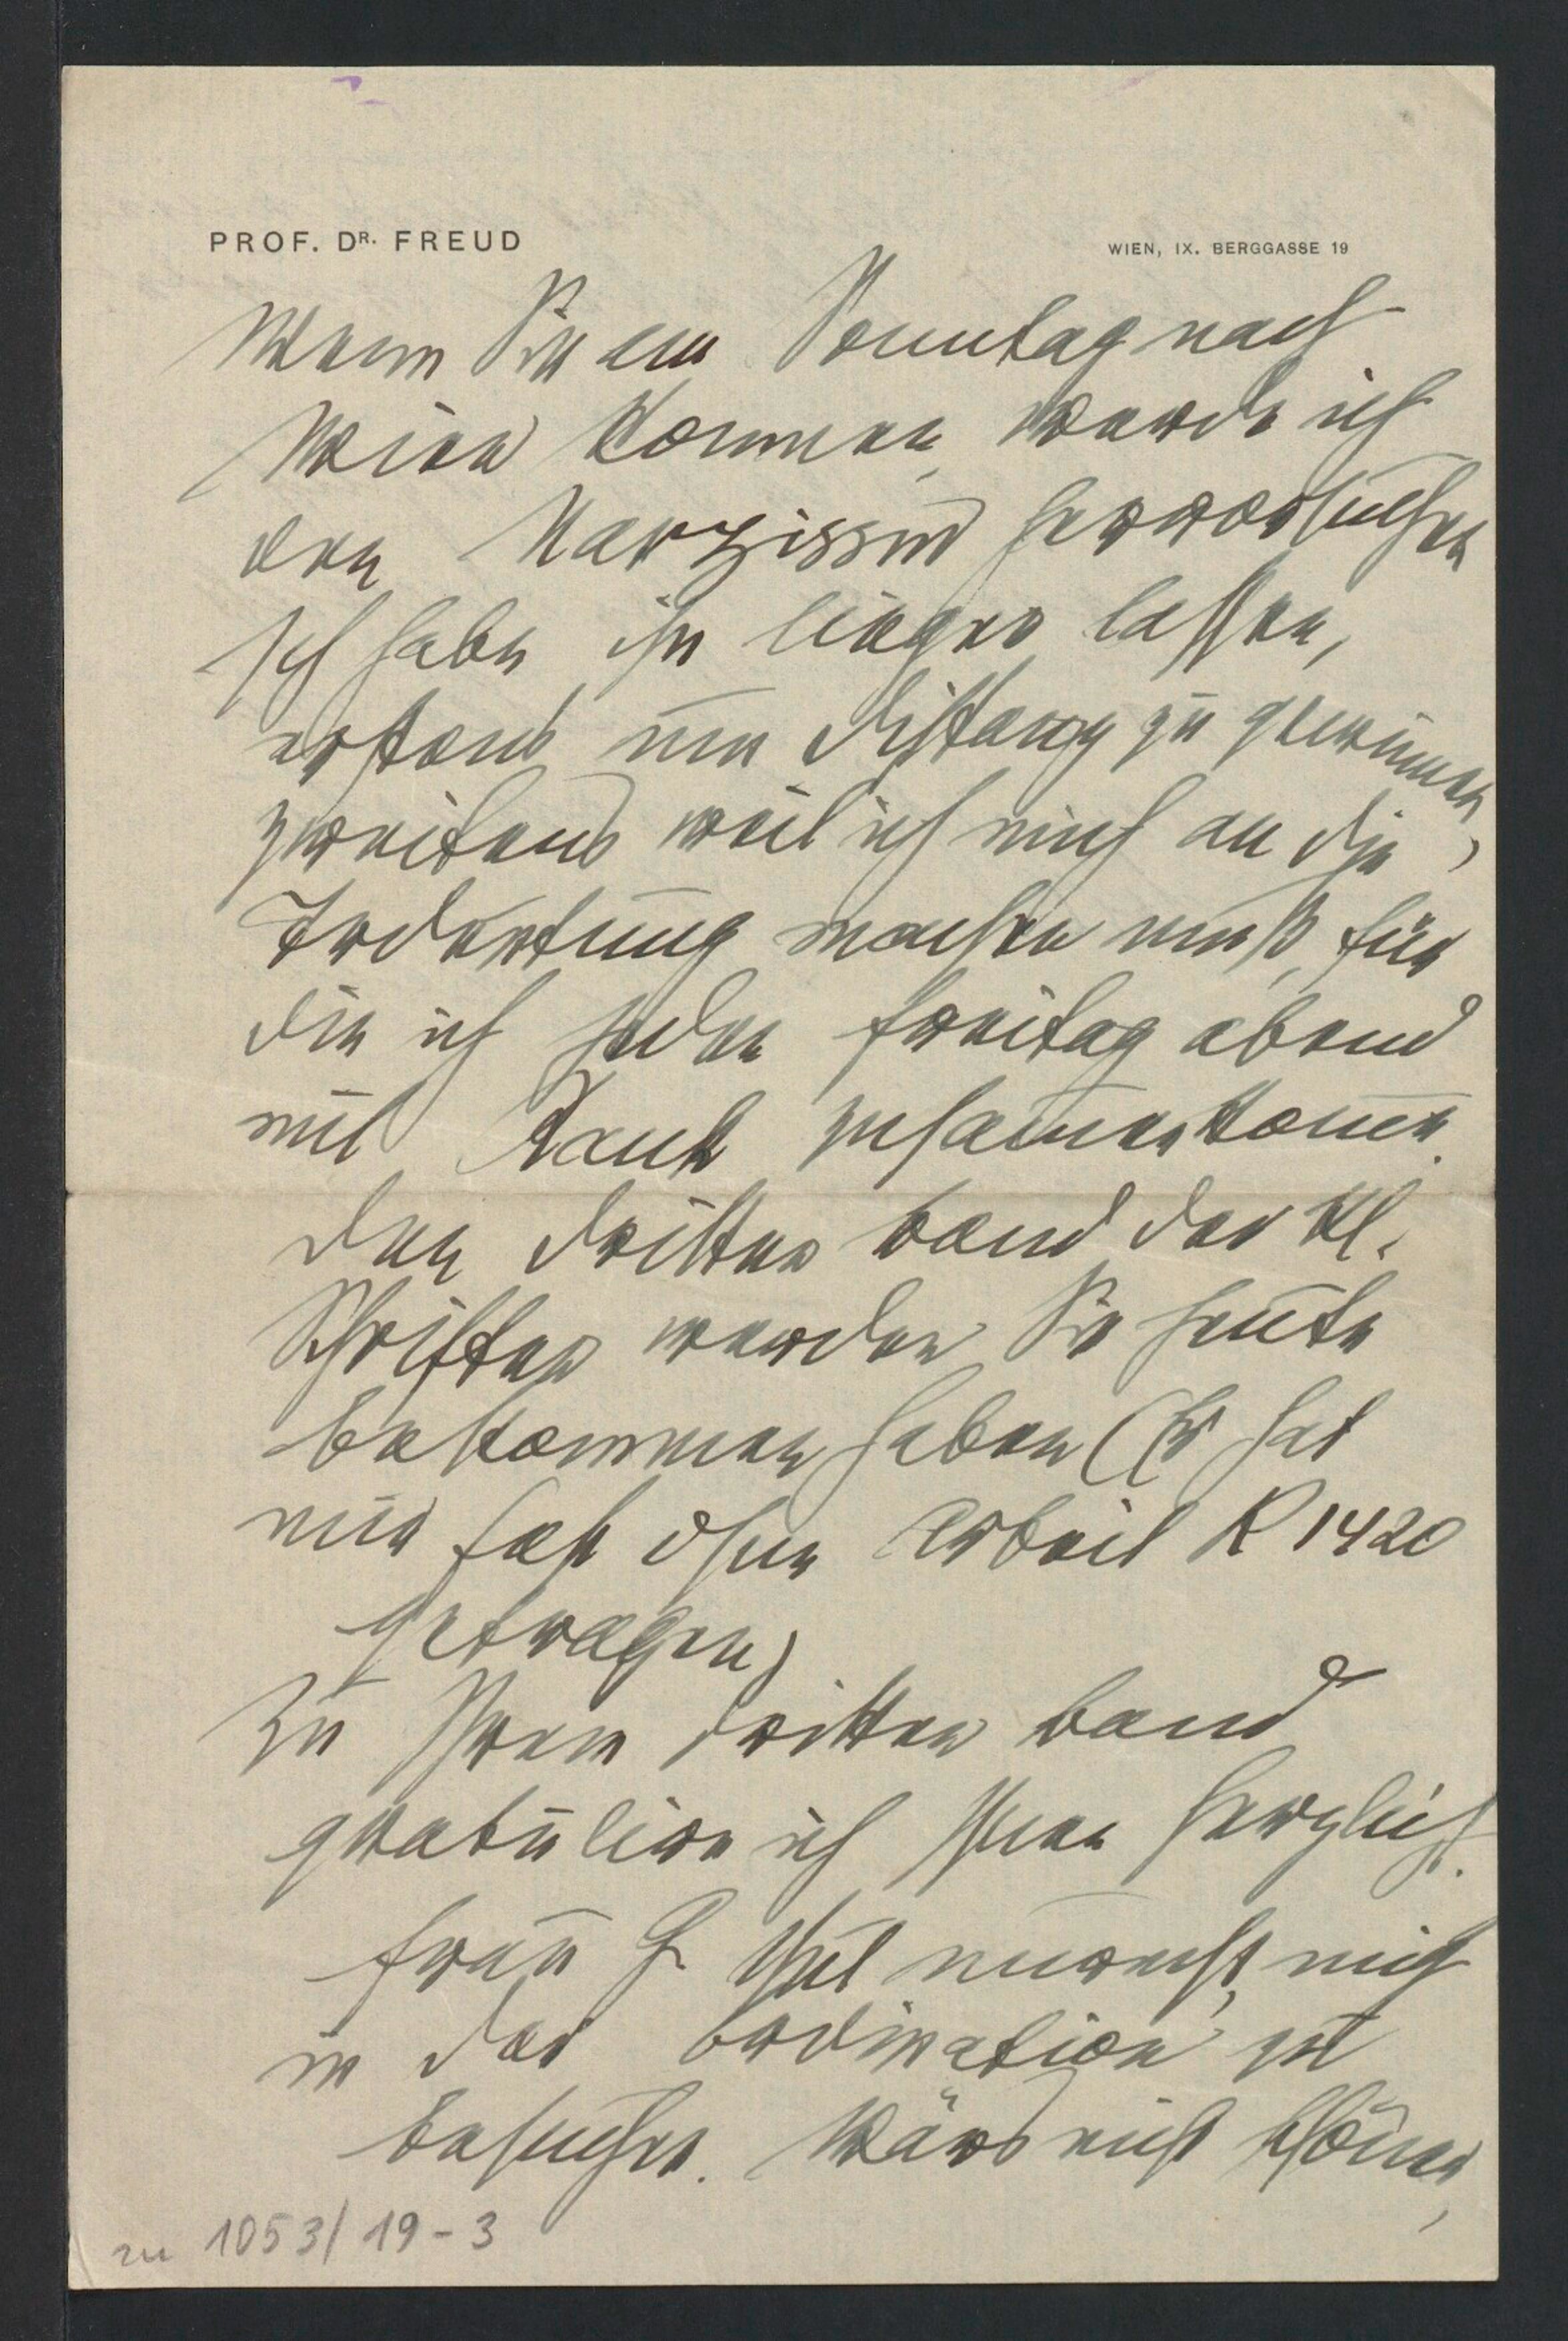 PROF. DR. FREUD
WIEN, IX. BERGGASSE 19
Wenn Sie am Sonntag nach
Wien kommen, werde ich
den Narzissm hervorsuchen
Ich habe ihn liegen lassen,
erstens um Distanz zu gewinnen,
zweitens weil ich mich an die
Trdeutung machen muß, für
die ich jeden Freitag abend
mit Rank zusam̄enkom̄e.
Den dritten Band der kl.
Schriften werden Sie heute
bekommen haben (Er hat
mir fast ohne Arbeit K 1420
getragen)
Zu Ihrem dritten Band
gratulire ich Ihnen herzlich.
Frau G. wünscht, mich
in der Ordination zu
besuchen. Wärs nicht schöner,
zu 1053/19-3